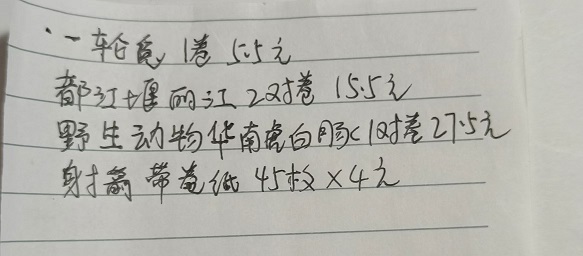 一轮兔 1卷 5.5元
都江堰 丽江 2对卷 15.5元
野生动物华南虎白肠 1对卷 27.5元
射箭 带卷纸 45枚×4元